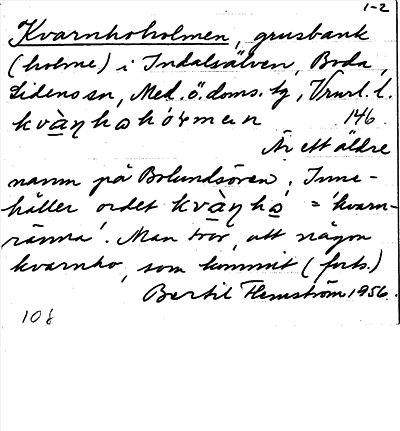 1-2
Kvarnhoholmen, grusbank
(holme) i Indalsälven, Boda,
Lidens sn, Med. ö. doms. tg, Vnrl. l.
kvàṇhohòɽmen 146.
Är ett äldre
namn på Bolundsören; Inne-
håller ordet kvàṇho = 'kvarn-
ränna'. Man tror, att någon
kvarnho, som kommit (forts.)
Bertil Flemström 1956.
108